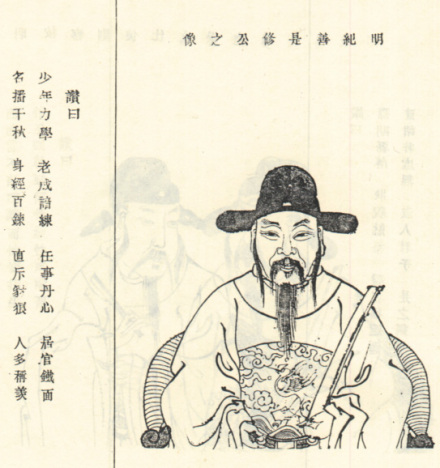 明紀善是修公之像
讚曰
少年力學 老成諳練 任事丹心 居官鐵面
名播千秋 身經百鍊 直斥豺狼 人多稱羨